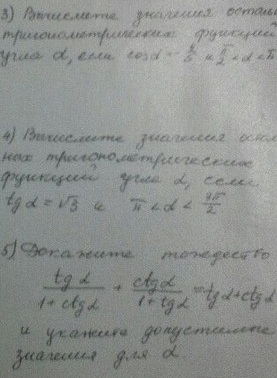 3) Вычислете значения осталь
тригонометрических функций
угла α, если cos α = - 3/5 и π/2 < α < π
4) Вычислите значения осталь
ных тригонометрических
функций угла α, если
tg α = √3 и π < α < 3π/2
5) Докажите тождество
tg α / (1 + ctg α) + ctg α / (1 + tg α) = tg α + ctg α
и укажите допустимые
значения для α.